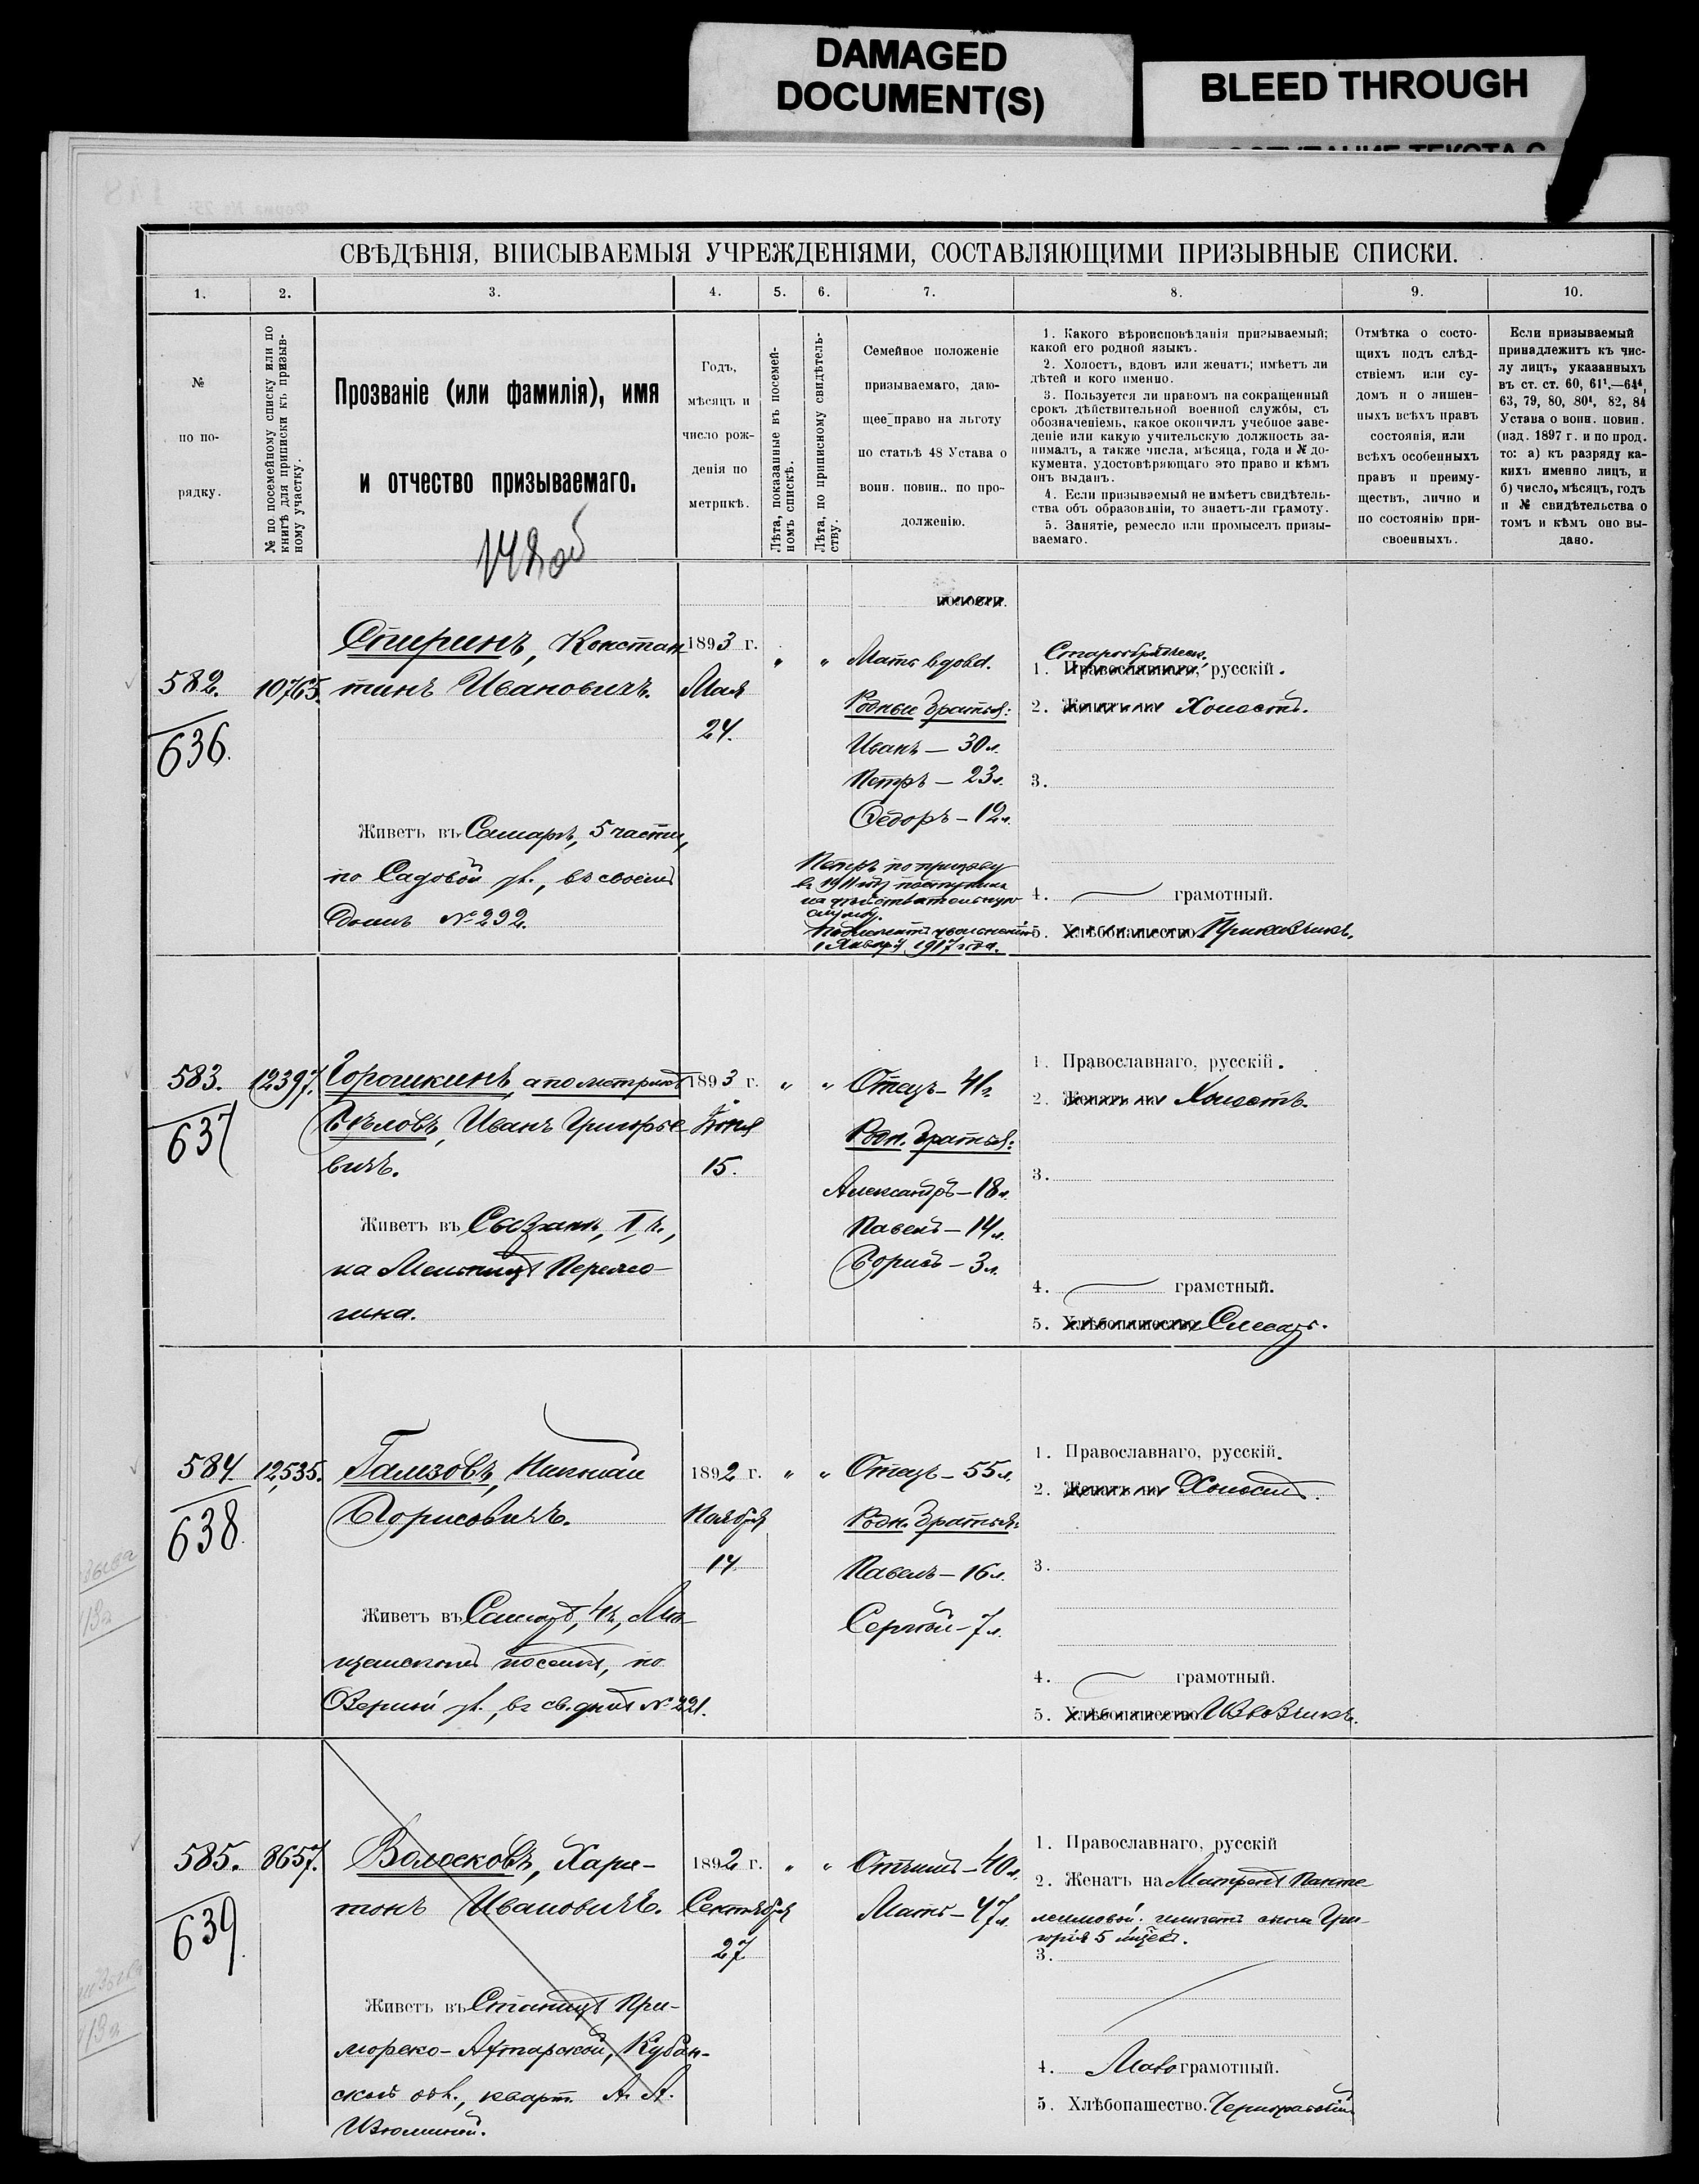 DAMAGED
DOCUMENT(S)
BLEED THROUGH
СВѢДѢНІЯ, ВПИСЫВАЕМЫЯ УЧРЕЖДЕНІЯМИ, СОСТАВЛЯЮЩИМИ ПРИЗЫВНЫЕ СПИСКИ.
1. 2. 3. 4. 5. 6. 7. 8. 9. 10.
№
по по-
рядку.
№ по посемейному списку или по
книгѣ для приписки къ призыв-
ному участку.
Прозваніе (или фамилія), имя
и отчество призываемаго.
Годъ,
мѣсяцъ и
число рож-
денія по
метрикѣ.
Лѣта, показанные въ посемей-
номъ спискѣ.
Лѣта, по приписному свидѣтель-
ству.
Семейное положеніе
призываемаго, даю-
щее право на льготу
по статьѣ 48 Устава о
воин. повин.. по про-
долженію.
1. Какого вѣроисповѣданія призываемый;
какой его родной языкъ.
2. Холостъ, вдовъ или женатъ; имѣетъ ли
дѣтей и кого именно.
3. Пользуется ли правомъ на сокращенный
срокъ дѣйствительной военной службы, съ
обозначеніемъ, какое окончилъ учебное заве-
деніе или какую учительскую должность за-
нималъ, а также числа, мѣсяца, года и № до-
кумента, удостовѣряющаго это право и кѣмъ
онъ выданъ.
4. Если призываемый не имѣетъ свидѣтель-
ства объ образованіи, то знаетъ-ли грамоту.
5. Занятіе, ремесло или промыселъ призы-
ваемаго.
Отмѣтка о состо-
щихъ подъ слѣд-
ствіемъ или су-
домъ и о лишен-
ныхъ всѣхъ правъ
состоянія, или
всѣхъ особенныхъ
правъ и преиму-
ществъ, лично и
по состоянію при-
своенныхъ.
Если призываемый
принадлежитъ къ чис-
лу лицъ, указанныхъ
въ ст. ст. 60, 61¹,—64⁴,
63, 79, 80, 80¹, 82, 84
Устава о воин. повин.
(изд. 1897 г. и по прод.
то: а) къ разряду ка-
кихъ именно лицъ, и
б) число, мѣсяцъ, годъ
и № свидѣтельства о
томъ и кѣмъ оно вы-
дано.
582.
636.
10765.
Спиринъ, Констан
тинъ Ивановичъ.
Живетъ въ Самарѣ, 5 части,
по Садовой ул., въ своемъ
домѣ № 292.
1893 г.
Мая
24.
" "
волости.
Мать вдова.
Родные братья:
Иванъ — 30 л.
Петръ — 23 л.
Ѳедоръ — 12 л.
Петръ по призыву
въ 1911 году поступилъ
на дѣйствительную
службу.
Подлежитъ увольненію
1 Января 1917 года.
Старообрядческ.
1. Православнаго, русскій.
2. Женатъ на Холостъ.
3.
4. грамотный.
5. Хлѣбопашество Прикащикъ.
583.
637
12397.
Горошкинъ, а по метрикѣ
Бѣловъ, Иванъ Григорье
вичъ.
Живетъ въ Сызрани, 1 ч.,
на Мельницѣ Пережо-
гина.
1893 г.
15.
" "
Отецъ — 41 г.
Родн. братья:
Александръ — 18 л.
Павелъ — 14 л.
Борисъ — 3 л.
1. Православнаго, русскій.
2. Женатъ на Холостъ.
3.
4. грамотный.
5. Хлѣбопашество Слесарь.
584
638
12,535.
Галзовъ, Николай
Борисовичъ.
Живетъ въ Самарѣ, 4 ч., Мѣ-
щанскомъ поселкѣ, по
ул., въ св. домѣ № 221.
1892 г.
Ноября
14
" "
Отецъ — 55 л.
Родн. братья:
Павелъ — 16 л.
Сергѣй — 7 л.
1. Православнаго, русскій.
2. Женатъ на Холостъ.
3.
4. грамотный.
5. Хлѣбопашество Извозчикъ.
585.
639
8657.
Волосковъ, Хари-
тонъ Ивановичъ.
Живетъ въ Станицѣ При-
морско-Ахтарской, Кубан-
ской обл., кварт. А. А.
Изюминой.
1892 г.
Сентября
27
" "
Отчимъ — 40 л.
Мать — 47 л.
1. Православнаго, русскій
2. Женатъ на Матренѣ Панте-
леимовой: имѣетъ сына Гри-
горія 5 мѣсяц.
3.
4. Малограмотный.
5. Хлѣбопашество. Чернорабочій